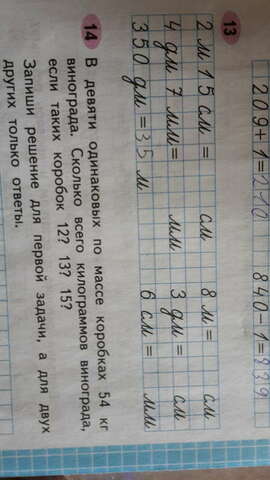 209+1=210 840-1=839
13
2 м 15 см = см 8 м = см
4 дм 7 мм = мм 3 дм = см
350 дм = 35 м 6 см = мм
14 В девяти одинаковых по массе коробках 54 кг
винограда. Сколько всего килограммов винограда,
если таких коробок 12? 13? 15?
Запиши решение для первой задачи, а для двух
других только ответы.